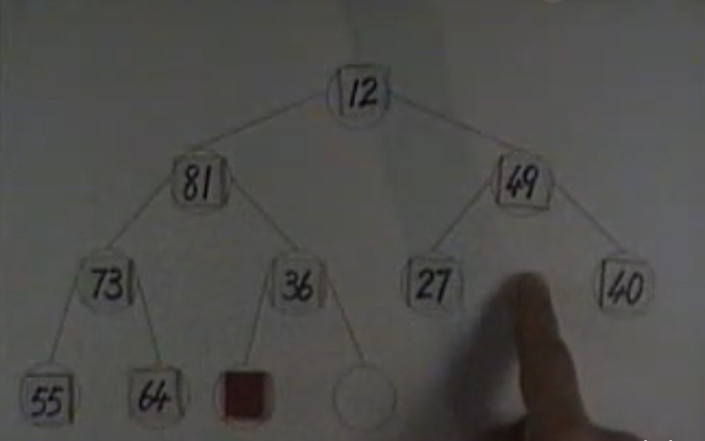 12
81 49
73 36 27 40
55 64